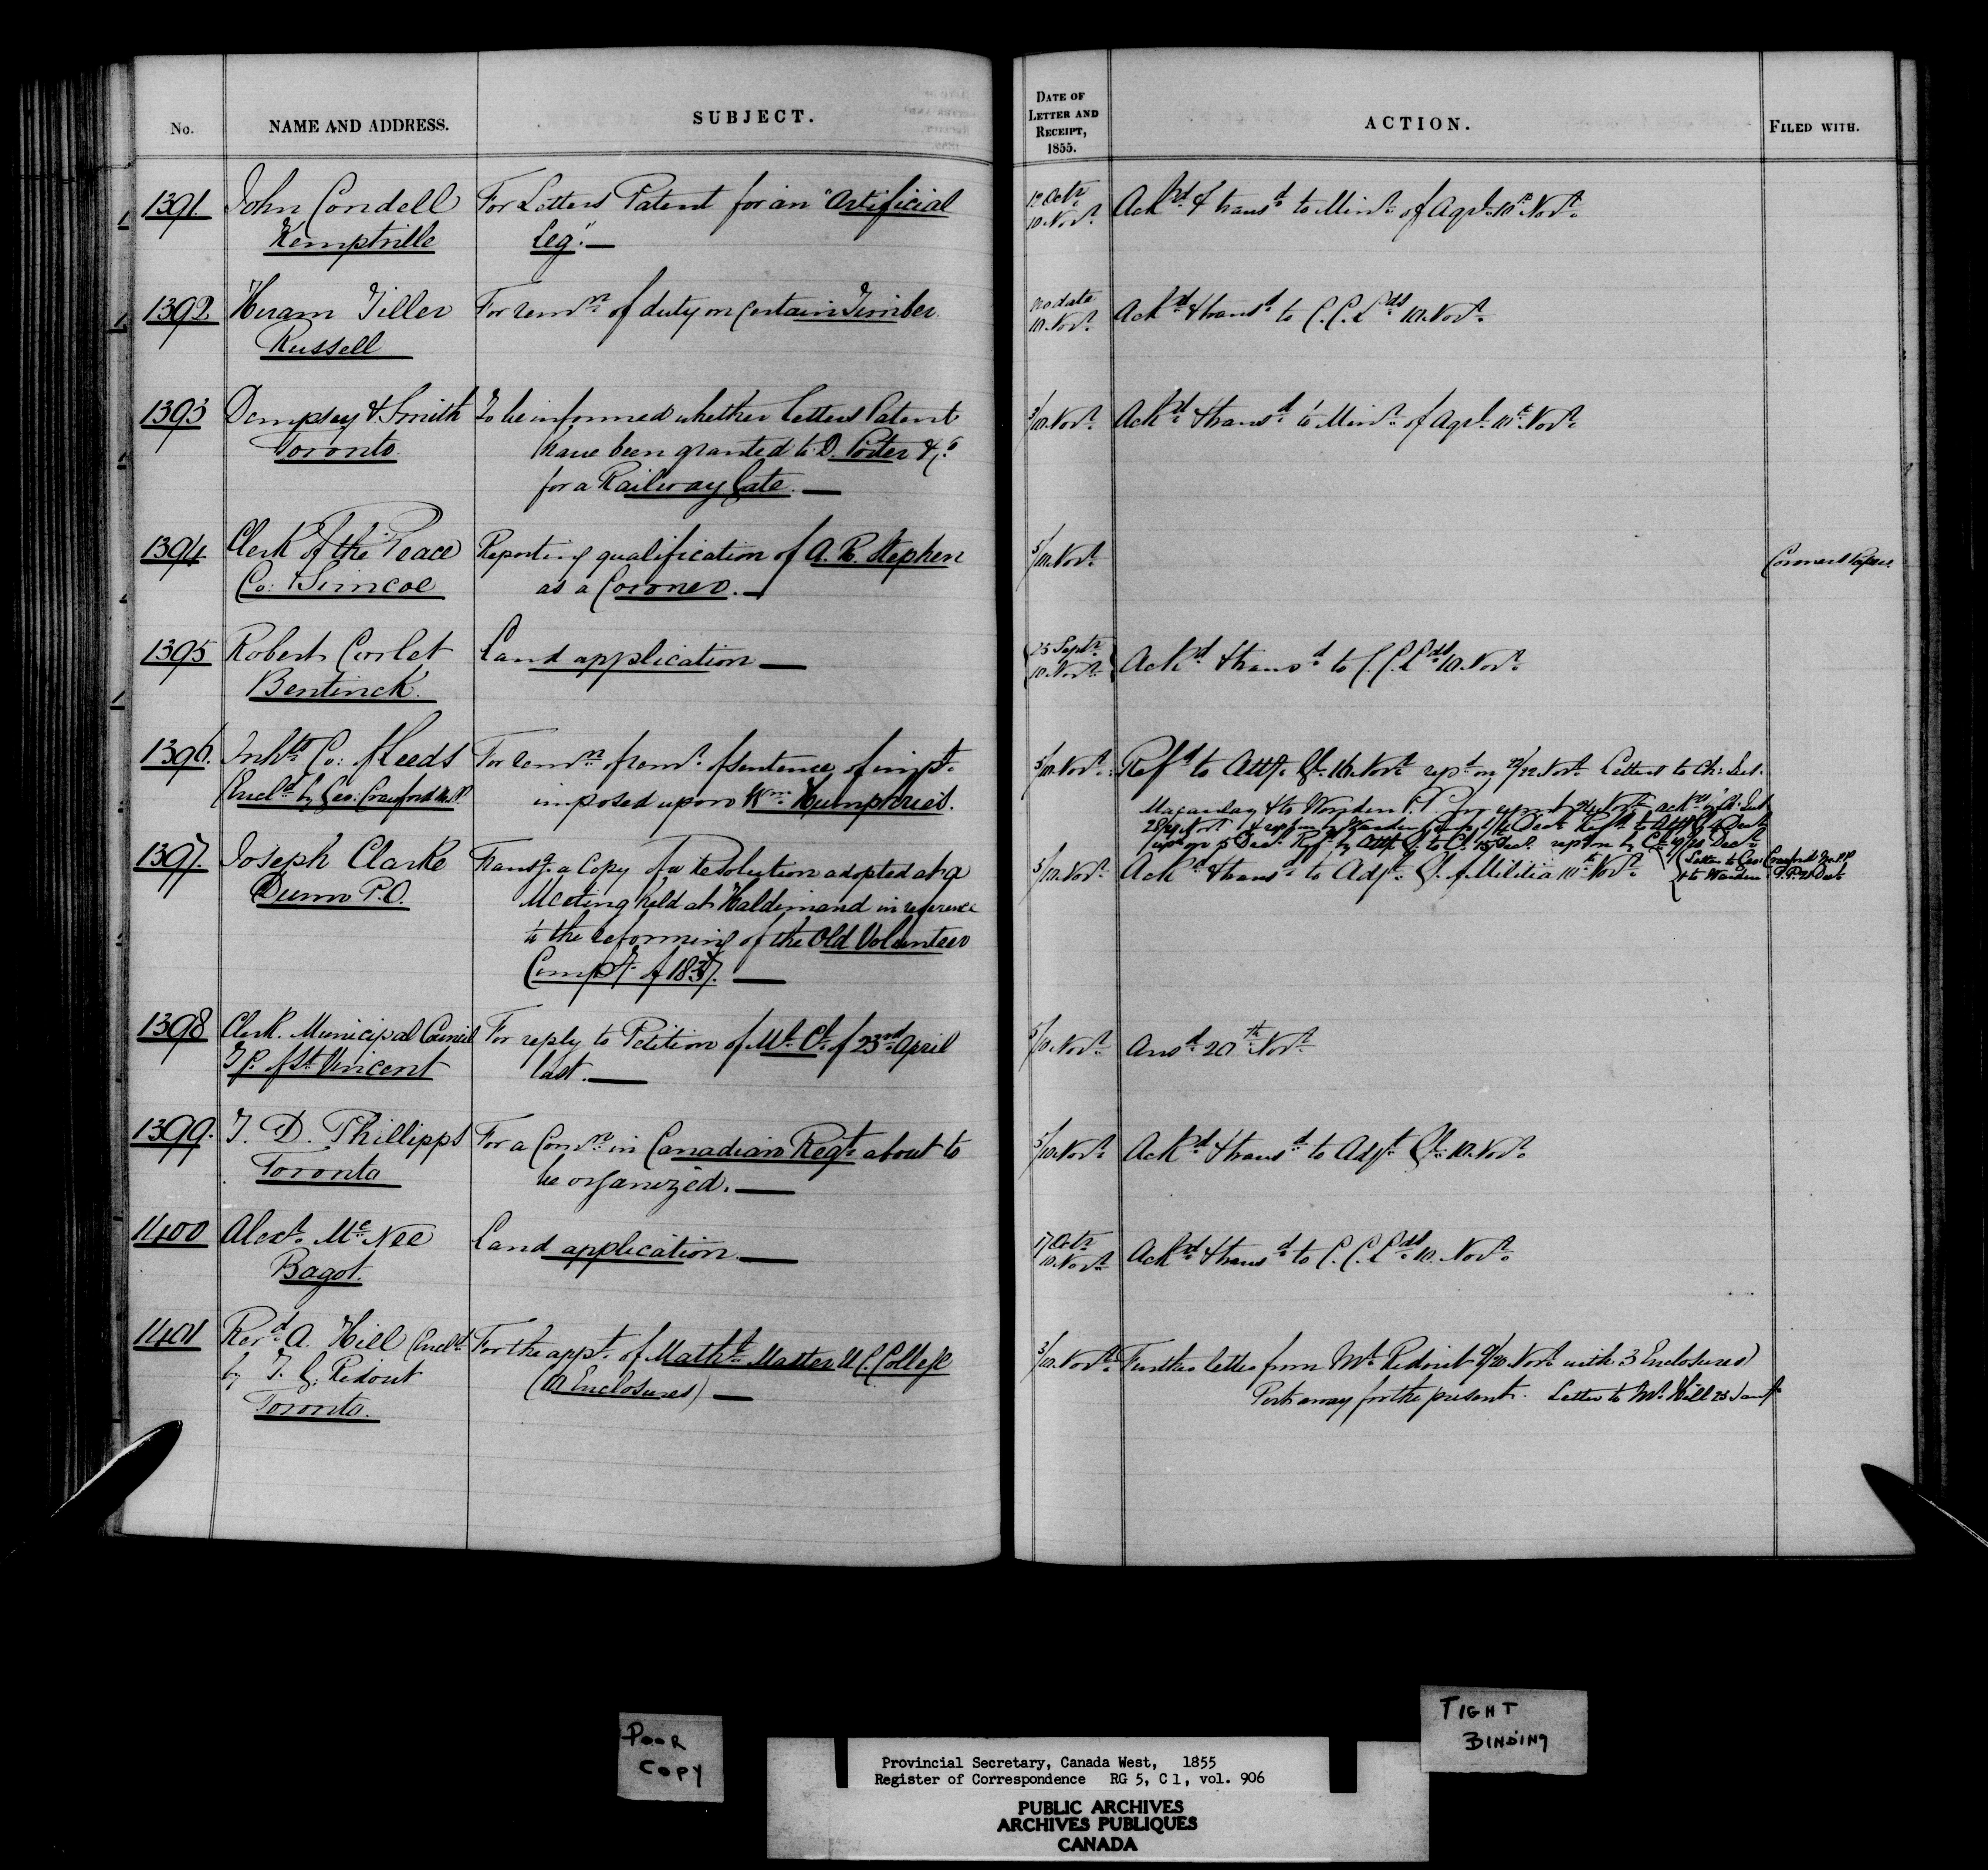 No.
NAME AND ADDRESS.
SUBJECT.
DATE OF LETTER AND RECEIPT, 1855.
ACTION.
FILED WITH.
1391.
John Condell
Kemptville
For Letters Patent for an "Artificial
Leg".—
10 Octr.
10. Novr.
Ackd. & transd. to Minr. of Agrl. 10th Novr.
1392
Hiram Tiller
Russell
For remn. of duty on Certain Timber.
no date
10. Novr.
Ackd. & transd. to C. C. Lds 10. Novr.
1393
Dempsey & Smith
Toronto.
To be informed whether Letters Patent
have been granted to D. Porter & Co.
for a Railway Gate.—
3/10. Novr.
Ackd. & transd. to Minr. of Agrl. 10th Novr.
1394
Clerk of the Peace
Co: Simcoe
Reporting qualification of A. R. Stephen
as a Coroner.—
5/10. Novr.
Coroners Papers.
1395
Robert Corlet
Bentinck.
Land application—
25 Septr.
10. Novr.
Ackd. & transd. to C. C. Lds 10. Novr.
1396.
Inhts. Co: of Leeds
(Encld. by Geo: Crawford M.P.P.
For remn. of remr. of sentence of impt.
imposed upon Wm. Humphries.
5/10. Novr.
Refd. to Atty. Gl. 16. Novr. repd. on 22/22. Novr. Letters to Ch: Just.
Macaulay & to Warden P.P. for report 24. Novr.
Refd. to Atty. Gl. 4 Decr.
repd. on 5 Decr. Refd. by Atty. Gl. to Cl. 15 Decr.
(Letter to Geo: Crawford M.P.P.
& to Warden P.P. 21 Decr.
1397.
Joseph Clarke
Dunn P.O.
Transg. a Copy of a Resolution adopted at a
Meeting held at Haldimand in reference
to the reforming of the Old Volunteer
Compy. of 1837.—
5/10. Novr.
Ackd. & transd. to Adjt. Gl. of Militia 10th Novr.
1398
Clerk. Municipal Council
Tp. of St. Vincent
For reply to Petition of Ml. Cl. of 23rd. April
last.—
5/10. Novr.
Ansd. 20th Novr.
1399.
T. D. Phillipps
Toronto
For a Comn. in Canadian Regt. about to
be organized.—
5/10. Novr.
Ackd. & transd. to Adjt. Gl. 10. Novr.
1400
Alexr. McNee
Bagot.
Land application.—
17 Octr.
10. Novr.
Ackd. & transd. to C. C. Lds. 10. Novr.
1401
Revd. A. Hill (Encld.
by T. G. Ridout
Toronto.
For the appt. of Matht. Master U. C. College
(11 Enclosures)—
3/10. Novr.
Further letter from Mr. Ridout 9/20. Novr. with 3 Enclosures)
Put away for the present. Letter to Mr. Hill 23 Jany.
POOR
COPY
TIGHT
BINDING
Provincial Secretary, Canada West, 1855
Register of Correspondence RG 5, C 1, vol. 906
PUBLIC ARCHIVES
ARCHIVES PUBLIQUES
CANADA